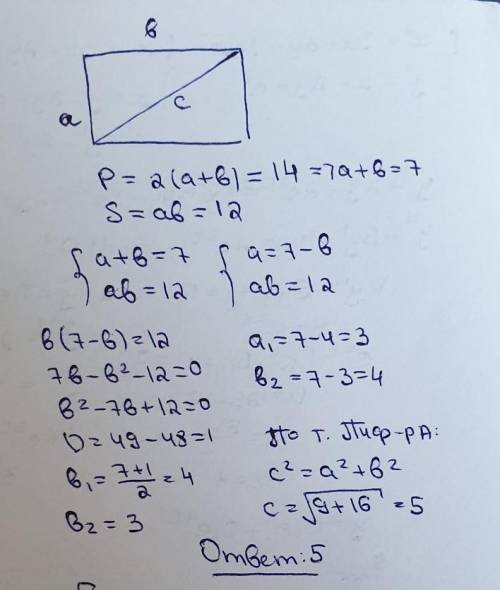 в
а
с
P = 2(а+в) = 14 => а+в = 7
S = ав = 12
{ а+в=7
ав=12
{ а=7-в
ав=12
в(7-в)=12
7в-в²-12=0
в²-7в+12=0
D = 49-48=1
в₁ = (7+1)/2 = 4
в₂ = 3
а₁=7-4=3
в₂=7-3=4
По т. Пиф-ра:
с² = а² + в²
с = √9+16 = 5
Ответ: 5